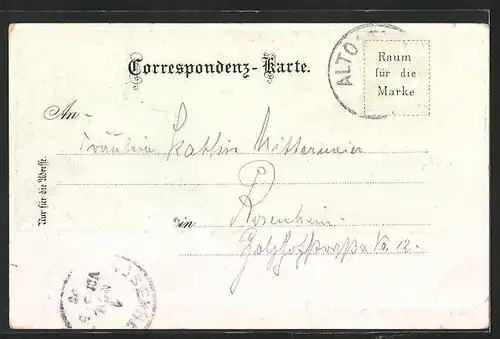 Correspondenz-Karte.
Raum
für die
Marke
ALTO
An
Fräulein Kathi Mittermeier
in Rosenheim
No. 12.
Nur für die Adresse.